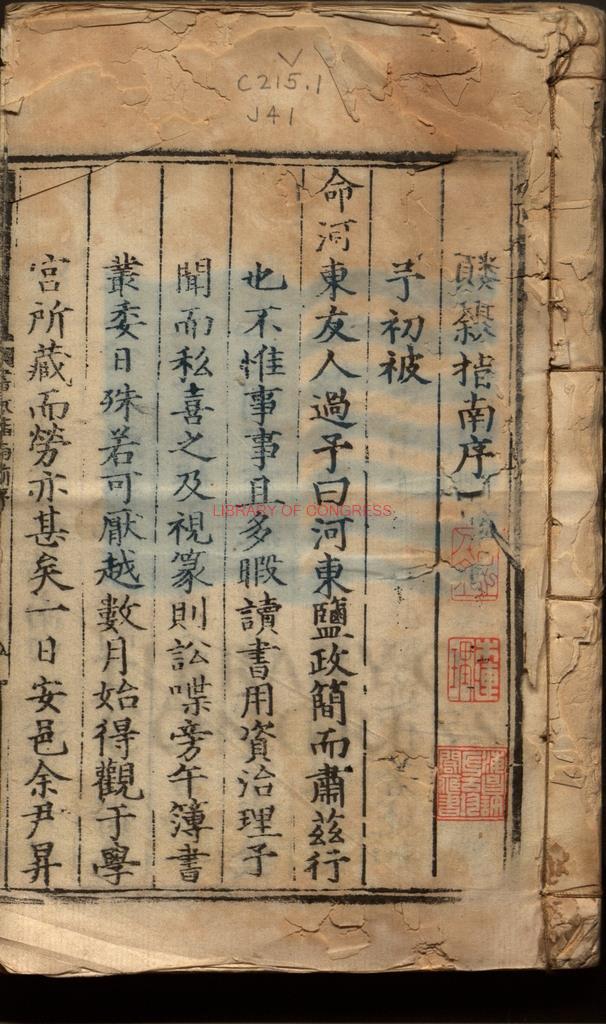 C215.1
J41
類編指南序
予初被
命河東友人過予曰河東鹽政簡而肅茲行
也不惟事事且多暇讀書用資治理予
聞而私喜之及視篆則訟喋旁午簿書
叢委日殊若可厭越數月始得觀于學
宮所藏而勞亦甚矣一日安邑余尹昇
LIBRARY OF CONGRESS